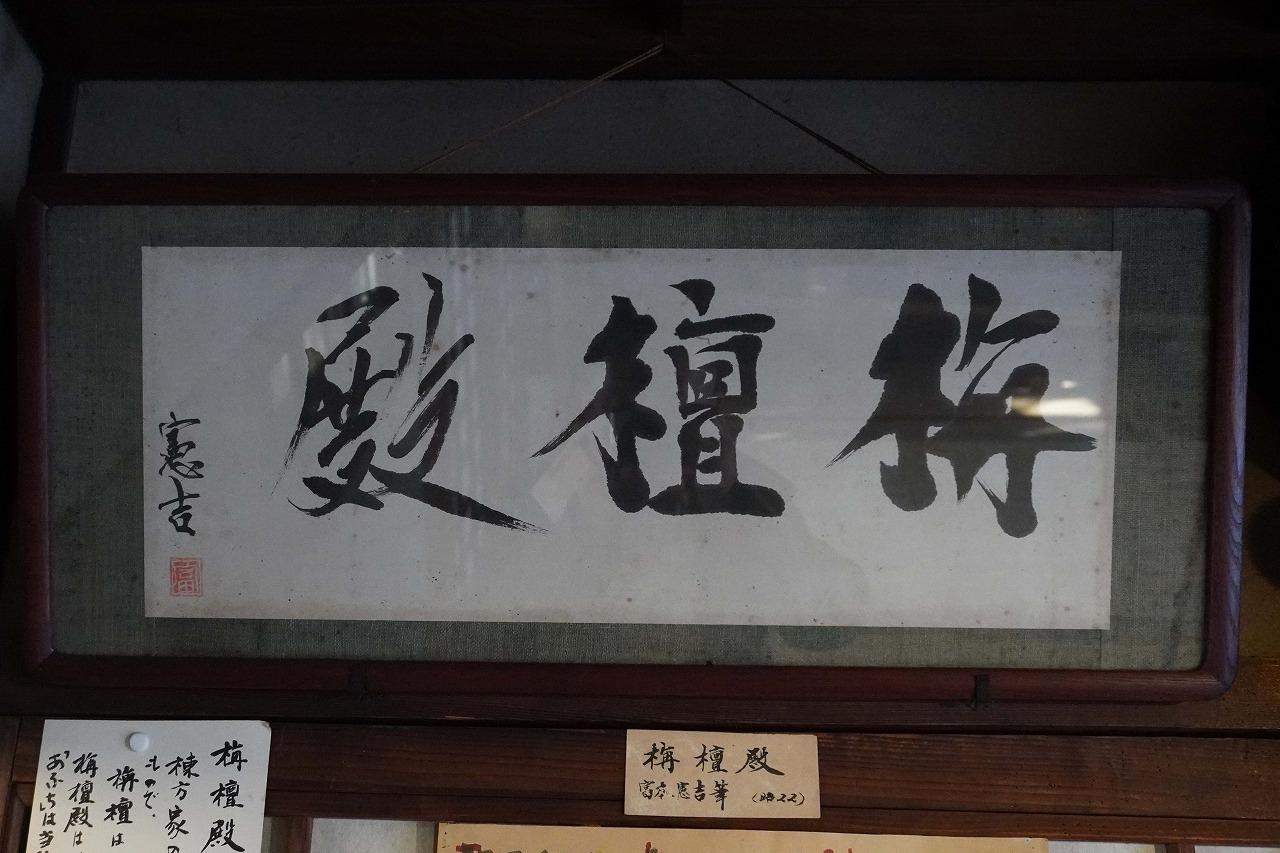 栴檀殿
憲吉
富
栴檀殿
富本憲吉筆 (昭22)
栴檀殿
棟方家の
ものです、
栴檀は
栴檀殿は
「あふちは当